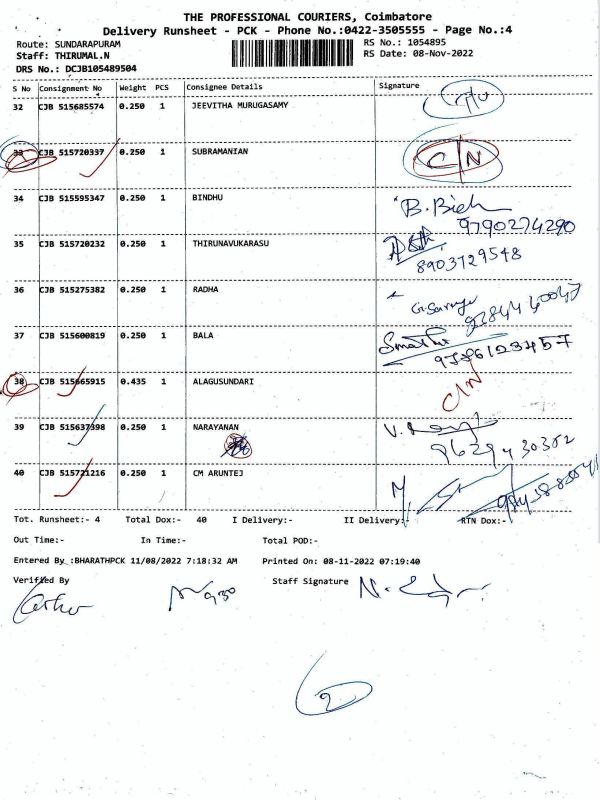 THE PROFESSIONAL COURIERS, Coimbatore
Delivery Runsheet - PCK - Phone No.:0422-3505555 - Page No.:4
Route: SUNDARAPURAM
RS No.: 1054895
Staff: THIRUMAL.N
RS Date: 08-Nov-2022
DRS No.: DCJB105489504
S No Consignment No Weight PCS Consignee Details Signature
32 CJB 515685574 0.250 1 JEEVITHA MURUGASAMY
33 CJB 515720337 0.250 1 SUBRAMANIAN C/N
34 CJB 515595347 0.250 1 BINDHU B.
9790274290
35 CJB 515720232 0.250 1 THIRUNAVUKARASU
8903729548
36 CJB 515275382 0.250 1 RADHA
37 CJB 515600819 0.250 1 BALA
9786123457
38 CJB 515665915 0.435 1 ALAGUSUNDARI C/N
39 CJB 515637398 0.250 1 NARAYANAN V.
40 CJB 515721216 0.250 1 CM ARUNTEJ M,
Tot. Runsheet:- 4 Total Dox:- 40 I Delivery:- II Delivery:- RTN Dox:-
Out Time:- In Time:- Total POD:-
Entered By :BHARATHPCK 11/08/2022 7:18:32 AM Printed On: 08-11-2022 07:19:40
Verified By Staff Signature N.
2